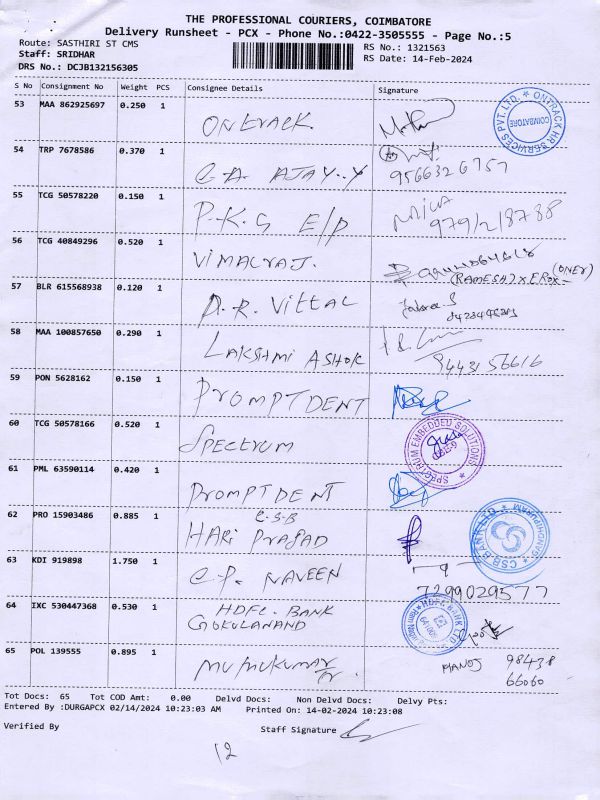 THE PROFESSIONAL COURIERS, COIMBATORE
Delivery Runsheet - PCX - Phone No.:0422-3505555 - Page No.:5
Route: SASTHIRI ST CMS
Staff: SRIDHAR
DRS No.: DCJB132156305
RS No.: 1321563
RS Date: 14-Feb-2024
S No Consignment No Weight PCS Consignee Details Signature
53 MAA 862925697 0.250 1 ONTRACK
ONTRACK HR SERVICES PVT. LTD. * COIMBATORE
54 TRP 7678586 0.370 1 C.A. AJAY.Y 9566326757
55 TCG 50578220 0.150 1 P.K.G E/P
56 TCG 40849296 0.520 1 VIMALRAJ. (RAMESH)
57 BLR 615568938 0.120 1 D.R. VITTAL
58 MAA 100857650 0.290 1 LAKSHMI ASHOK
59 PON 5628162 0.150 1 PROMPTDENT
60 TCG 50578166 0.520 1 SPECTRUM
SPECTRUM EMBEDDED SOLUTIONS
61 PML 63590114 0.420 1 PROMPTDENT
62 PRO 15903486 0.885 1 C.S.B
HARI PRASAD
CSB BANK LTD
63 KDI 919898 1.750 1 C.P. NAVEEN 7299029577
64 IXC 530447368 0.530 1 HDFC. BANK
GOKULANAND
HDFC BANK LTD
65 POL 139555 0.895 1 MUTHUKUMAR MANOJ 98438
66060
Tot Docs: 65 Tot COD Amt: 0.00 Delvd Docs: Non Delvd Docs: Delvy Pts:
Entered By :DURGAPCX 02/14/2024 10:23:03 AM Printed On: 14-02-2024 10:23:08
Verified By Staff Signature
12